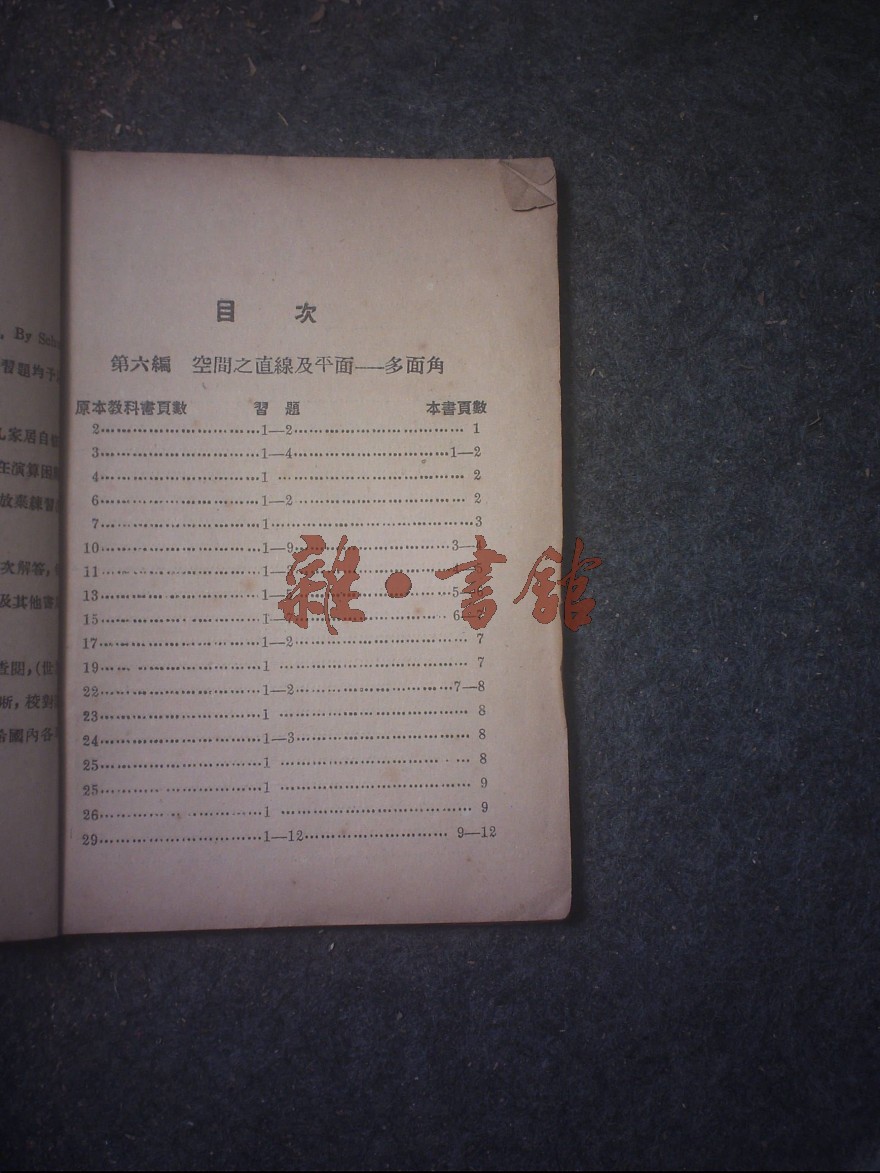 . By
習題均予
家居自
任演算困
放棄練習
次解答,
及其他書
查閱,(世
晰,校對
希國內各
目 次
第六編 空間之直線及平面——多面角
原本教科書頁數 習 題 本書頁數
2……………………………1—2……………………………… 1
3……………………………1—4……………………………1—2
4……………………………1 ……………………………… 2
6……………………………1—2 …………………………… 2
7……………………………1………………………………3
10…………………………1—9…………………………3—
11…………………………1—
13…………………………1—………………………5
15…………………………1—…………………………6
17…………………………1—2…………………………… 7
19…………………………1 ……………………………… 7
22…………………………1—2…………………………7—8
23…………………………1 ……………………………… 8
24…………………………1—3…………………………… 8
25…………………………1 ……………………………… 8
25…………………………1 ……………………………… 9
26…………………………1 ……………………………… 9
29…………………………1—12………………………… 9—12
雜·書館